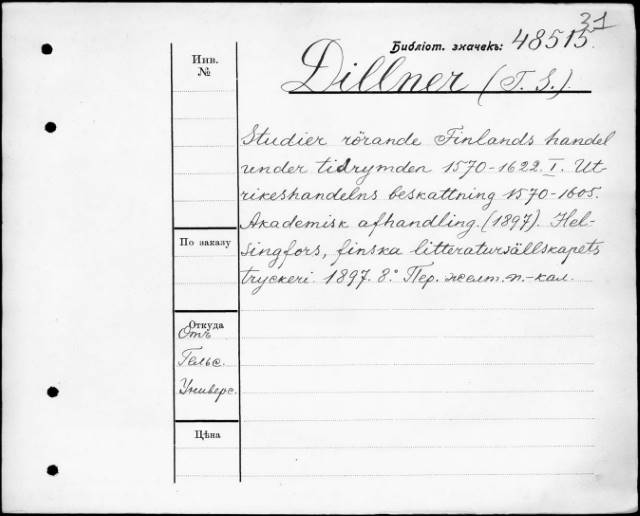 31
Библіот. значекъ: 48515.
Инв.
№
Dillner (T. S.).
Studier rörande Finlands handel
under tidrymden 1570-1622. I. Ut-
rikeshandelns beskattning 1570-1605.
Akademisk afhandling. (1897). Hel-
singfors, finska litteratursällskapets
tryckeri. 1897. 8.° Пер. желт. п.-кал.
По заказу
Откуда
Отъ
Гельс.
Универс.
Цѣна